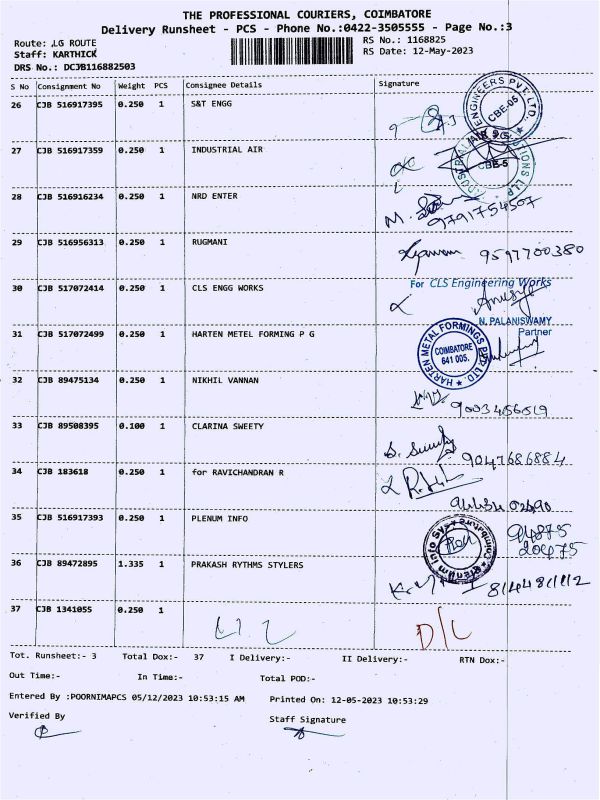 THE PROFESSIONAL COURIERS, COIMBATORE
Delivery Runsheet - PCS - Phone No.:0422-3505555 - Page No.:3
Route: .LG ROUTE RS No.: 1168825
Staff: KARTHICK RS Date: 12-May-2023
DRS No.: DCJB116882503
S No Consignment No Weight PCS Consignee Details Signature
26 CJB 516917395 0.250 1 S&T ENGG
ENGINEERS PVT. LTD. CBE-05
27 CJB 516917359 0.250 1 INDUSTRIAL AIR
CBE-5
28 CJB 516916234 0.250 1 NRD ENTER
9791754507
29 CJB 516956313 0.250 1 RUGMANI
9597700380
30 CJB 517072414 0.250 1 CLS ENGG WORKS
For CLS Engineering Works
N. PALANISWAMY
Partner
31 CJB 517072499 0.250 1 HARTEN METEL FORMING P G
HARTEN METAL FORMINGS PVT. LTD. COIMBATORE 641 005.
32 CJB 89475134 0.250 1 NIKHIL VANNAN
9003456519
33 CJB 89508395 0.100 1 CLARINA SWEETY
9047686884
34 CJB 183618 0.250 1 for RAVICHANDRAN R
35 CJB 516917393 0.250 1 PLENUM INFO
Plenum Info Sys Coimbatore
94875
20475
36 CJB 89472895 1.335 1 PRAKASH RYTHMS STYLERS
37 CJB 1341055 0.250 1
D/L
Tot. Runsheet:- 3 Total Dox:- 37 I Delivery:- II Delivery:- RTN Dox:-
Out Time:- In Time:- Total POD:-
Entered By :POORNIMAPCS 05/12/2023 10:53:15 AM Printed On: 12-05-2023 10:53:29
Verified By Staff Signature